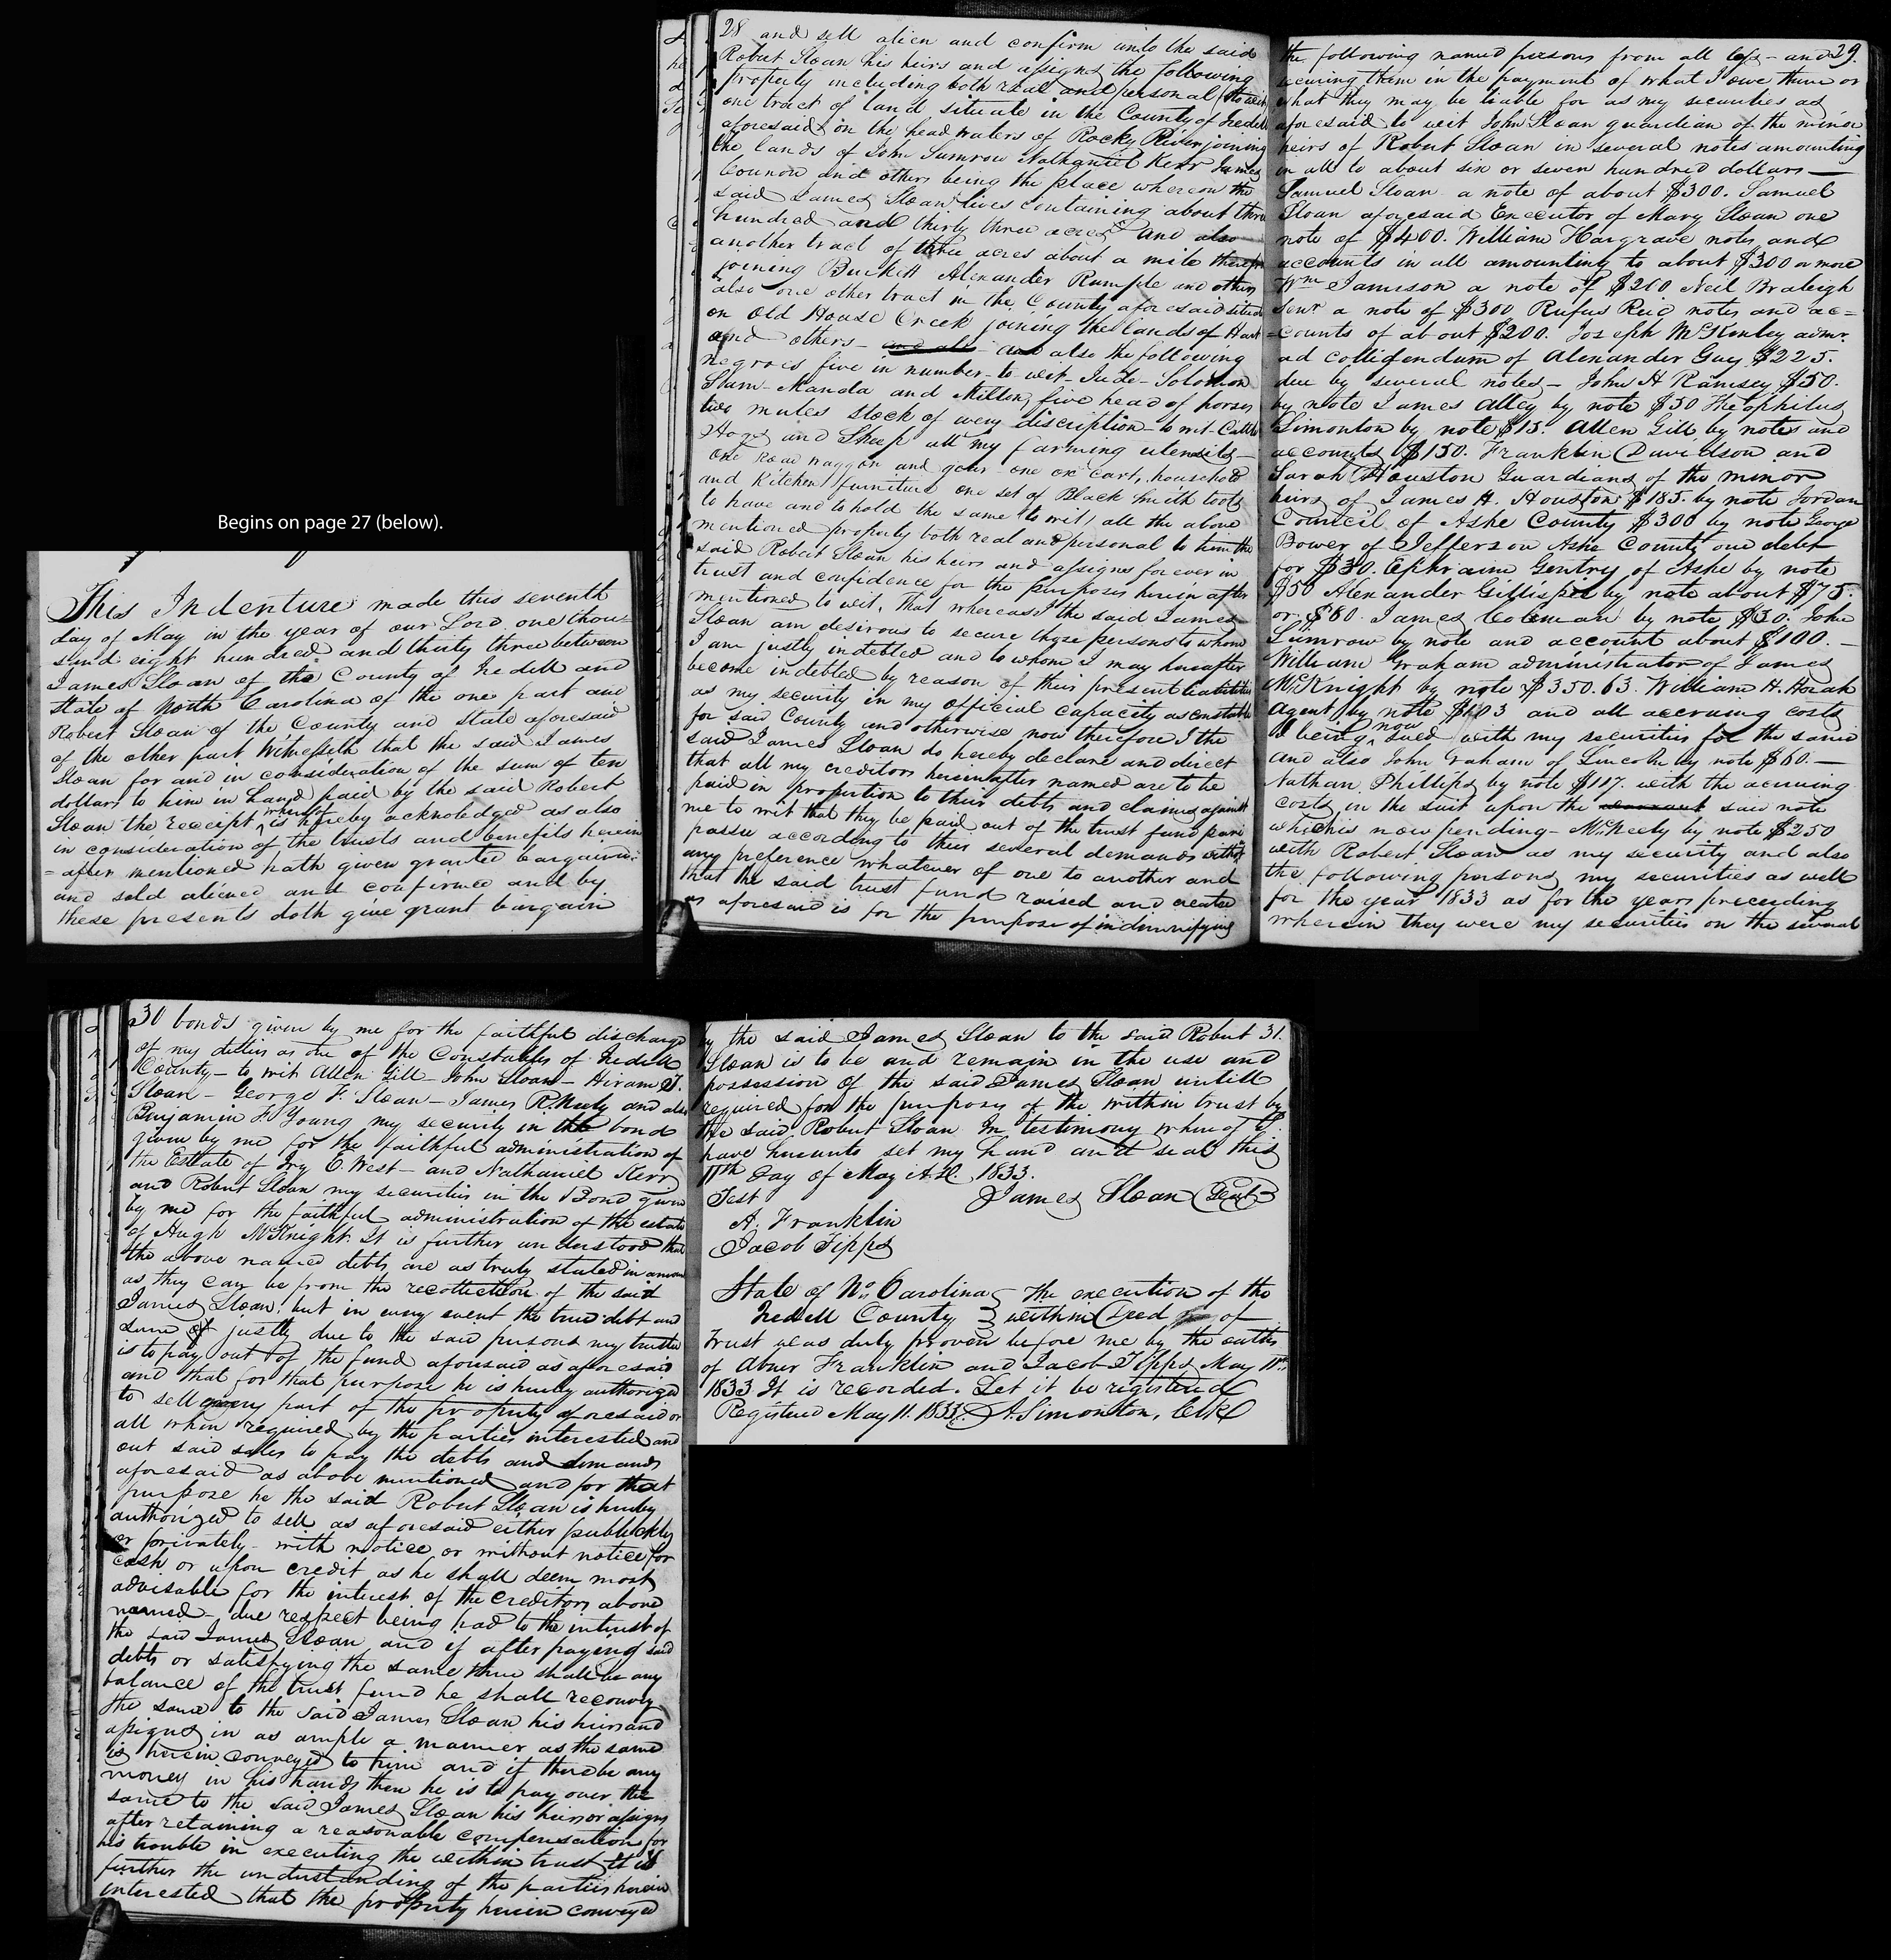 Begins on page 27 (below).
This Indenture made this seventh
day of May in the year of our Lord one thou-
sand eight hundred and thirty three between
James Sloan of the County of Iredell and
State of North Carolina of the one part and
Robert Sloan of the County and State aforesaid
of the other part Witnesseth that the said James
Sloan for and in consideration of the sum of ten
dollars to him in hand paid by the said Robert
Sloan the receipt whereof is hereby acknowledged as also
in consideration of the trusts and benefits herein
=after mentioned hath given granted bargained
and sold aliened and confirmed and by
these presents doth give grant bargain
28 and sell alien and confirm unto the said
Robert Sloan his heirs and assigns the following
property including both real and personal (to wit)
one tract of land situate in the County of Iredell
aforesaid on the head waters of Rocky River joining
the lands of John Sumrow Nathaniel Kerr James
and others being the place whereon the
said James Sloan lives containing about three
hundred and thirty three acres and also
another tract of three acres about a mile therefrom
joining Burkett Alexander Rumple and others
also one other tract in the County aforesaid situate
on Old House Creek joining the lands of Hart
and others - and also - and also the following
negroes five in number - to wit - Jude - Solomon
Sham - Manda and Milton, five head of horses
two mules stock of every discription - to wit - Cattle
Hogs and Sheep all my farming utensils -
One Road waggon and gear - one ox cart, household
and Kitchen furniture one set of Black Smith tools
to have and to hold the same (to wit) all the above
mentioned property both real and personal to him the
said Robert Sloan his heirs and assigns forever in
trust and confidence for the purposes herein after
mentioned to wit. That whereas I the said James
Sloan am desirous to secure those persons to whom
I am justly indebted and to whom I may hereafter
become indebted by reason of their present liabilities
as my security in my official capacity as constable
for said County and otherwise now therefore I the
said James Sloan do hereby declare and direct
that all my creditors hereinafter named are to be
paid in proportion to their debts and claims against
me to wit that they be paid out of the trust fund pari
passu according to their several demands without
any preference whatever of one to another and
that the said trust fund raised and created
as aforesaid is for the purpose of indemnifying
29.
the following named persons from all loss - and
securing them in the payment of what I owe them or
what they may be liable for as my securities as
aforesaid to wit John Sloan guardian of the minor
heirs of Robert Sloan in several notes amounting
in all to about six or seven hundred dollars -
Samuel Sloan a note of about $300. Samuel
Sloan aforesaid Executor of Mary Sloan one
note of $400. William Hargrave notes and
accounts in all amounting to about $300 or more
Wm Jamison a note of $200 Neil Braleigh
Senr a note of $300 Rufus Reid notes and ac=
=counts of about $200. Joseph McKinley admr.
ad colligendum of Alexander Guy $225.
due by several notes - John H Ramsey $50.
by note James Alley by note $50 Theophilus
Simonton by note $15. Allen Gill by notes and
accounts $150. Franklin Davidson and
Sarah Houston Guardians of the minor
heirs of James H. Houston $185. by note Jordan
Council of Ashe County $300 by note George
Bower of Jefferson Ashe County one debt
for $30. Ephraim Gentry of Ashe by note
$50 Alexander Gillispee by note about $75.
or $80. James Coleman by note $30. John
Sumrow by note and account about $100. -
William Graham administrator of James
McKnight by note $350.63. William H. Horah
Agent by note $103 and all accruing costs
I being now sued with my securities for the same
and also John Graham of Lincoln by note $60. -
Nathan Phillips by note $117. with the accruing
costs in the suit upon the warrant said note
which is now pending - McNeely by note $250
with Robert Sloan as my security and also
the following persons my securities as well
for the year 1833 as for the years preceding
wherein they were my securities on the several
30 bonds given by me for the faithful discharge
of my duties as one of the Constables of Iredell
County - to wit Allen Gill - John Sloan - Hiram T.
Sloan - George F. Sloan - James R. Neely and also
Benjamin F. Young my security in the bond
given by me for the faithful administration of
the Estate of Ivy C. West - and Nathaniel Kerr
and Robert Sloan my securities in the Bond given
by me for the faithful administration of the estate
of Hugh McKnight. It is further understood that
the above named debts are as truly stated in amount
as they can be from the recollection of the said
James Sloan. but in every event the true debt and
sum of justly due to the said persons my trustee
is to pay out of the fund aforesaid as aforesaid
and that for that purpose he is hereby authorized
to sell every part of the property aforesaid or
all when required by the parties interested and
out said sales to pay the debts and demands
aforesaid as above mentioned and for that
purpose he the said Robert Sloan is hereby
authorized to sell as aforesaid either publickly
or privately - with notice or without notice for
cash or upon credit as he shall deem most
advisable for the interest of the creditors above
named - due respect being had to the interest of
the said James Sloan and if after paying said
debts or satisfying the same there shall be any
balance of the trust fund he shall reconvey
the same to the said James Sloan his heirs and
assigns in as ample a manner as the same
is herein conveyed to him and if there be any
money in his hands then he is to pay over the
same to the said James Sloan his heirs or assigns
after retaining a reasonable compensation for
his trouble in executing the within trust It is
further the understanding of the parties herein
interested that the property herein conveyed
by the said James Sloan to the said Robert 31.
Sloan is to be and remain in the use and
possession of the said James Sloan untill
required for the purposes of the within trust by
the said Robert Sloan In testimony whereof I
have hereunto set my hand and seal this
11th day of May A.D. 1833.
Test James Sloan (Seal)
A. Franklin
Jacob Fipps
State of No. Carolina } The execution of the
Iredell County } within Deed of
trust was duly proven before me by the oaths
of Abner Franklin and Jacob Fipps May 11th
1833 It is recorded. Let it be registered
Registered May 11. 1833. A. Simonton, Clk